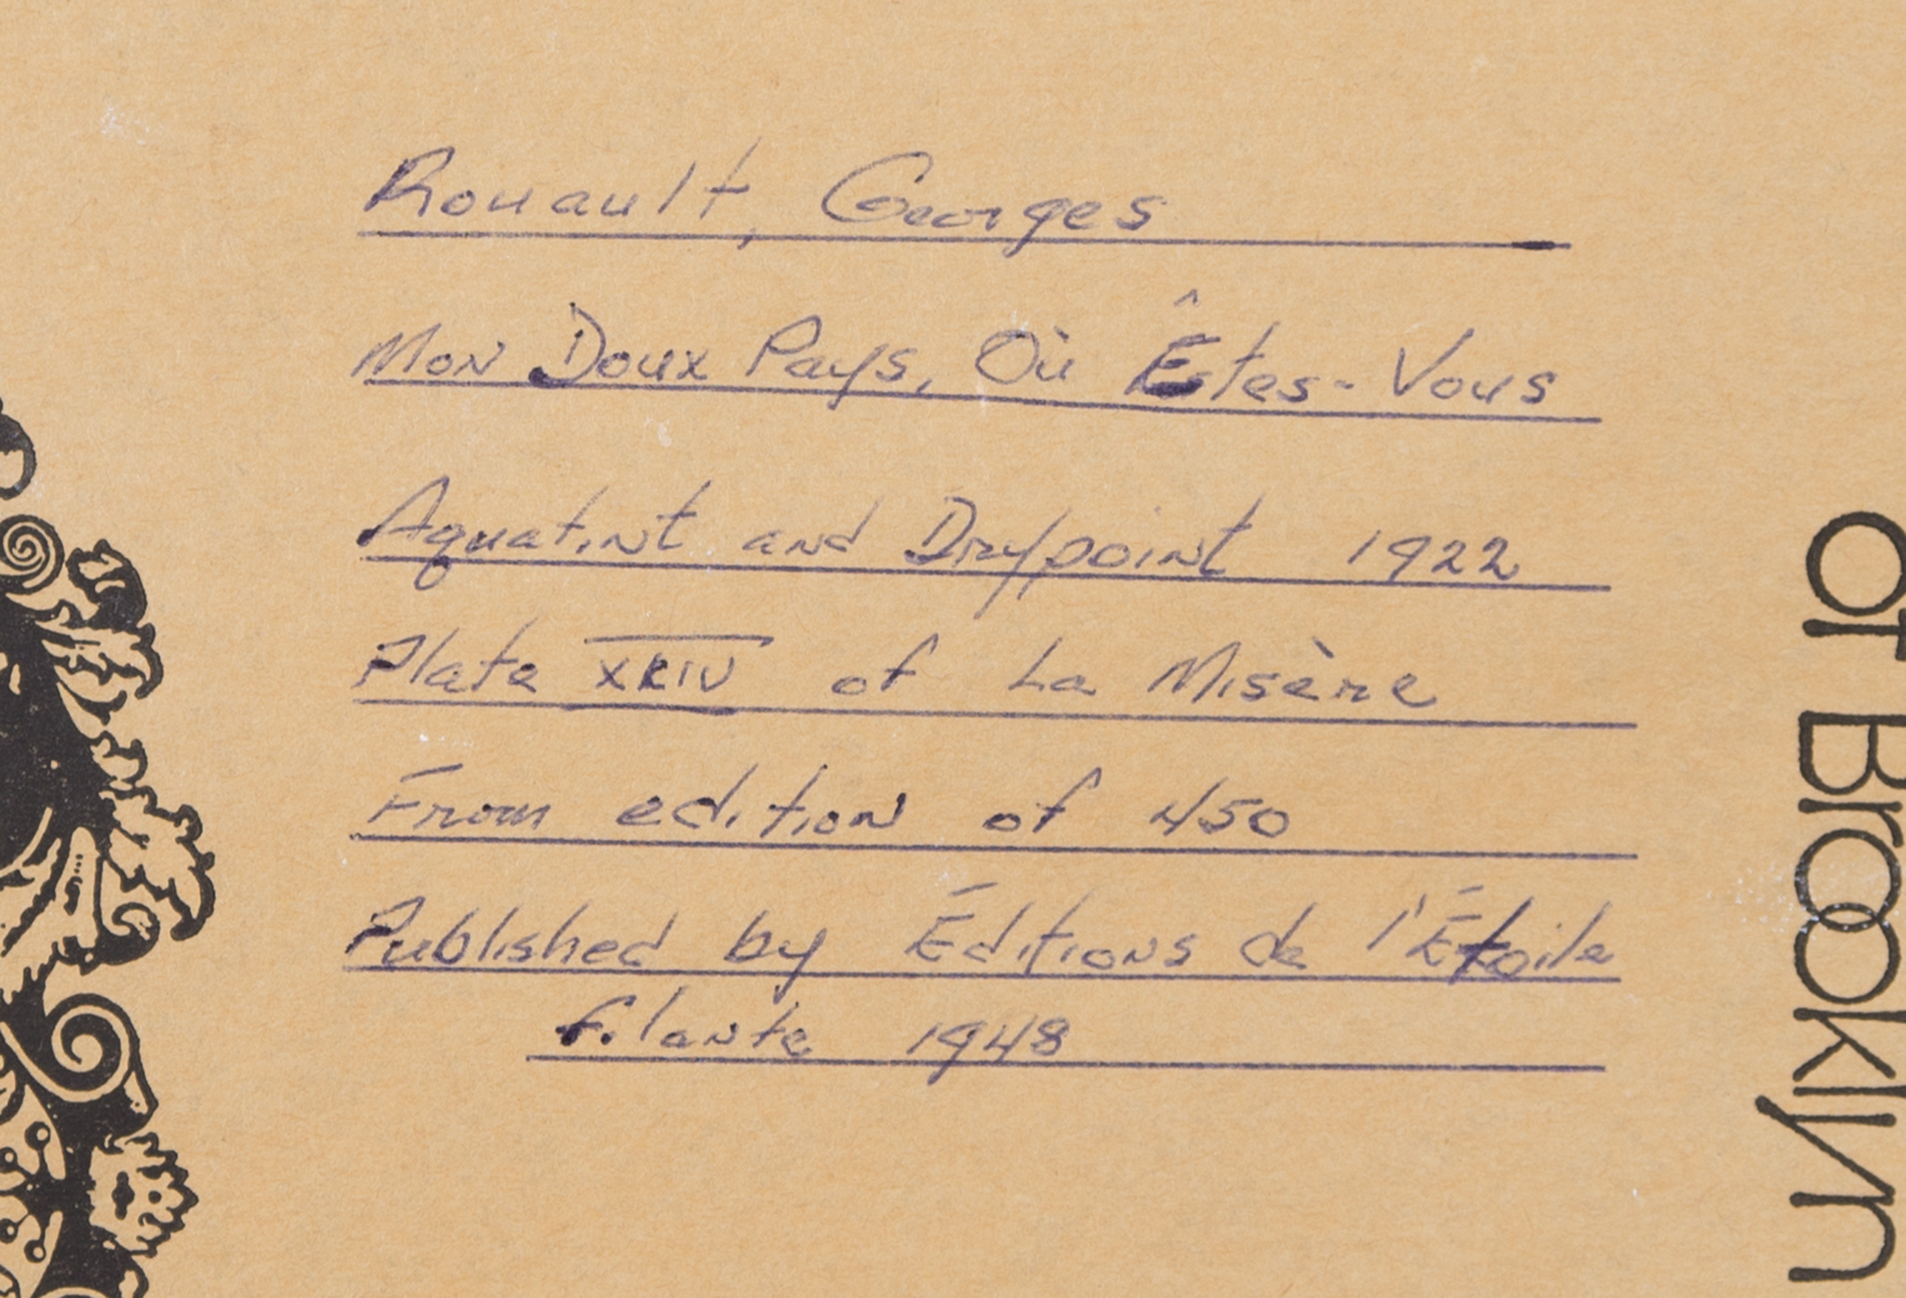 Rouault, Georges
Mon Doux Pays, Où Êtes-Vous
Aquatint and Drypoint 1922
Plate XLIV of La Misère
From edition of 450
Published by Éditions de l'Étoile
filante 1948
of Brooklyn